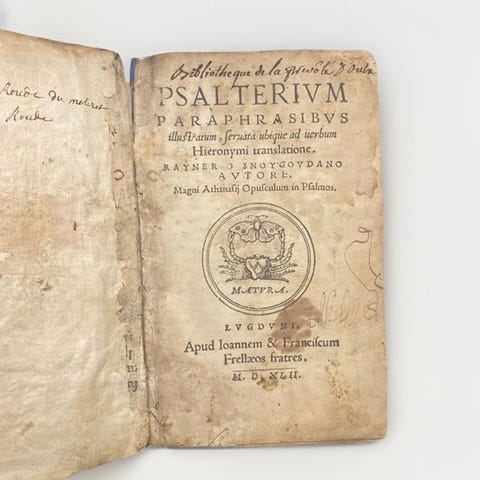 Roude du
Roude
Bibliotheque de la prevôté D'
PSALTERIVM
PARAPHRASIBVS
illustratum, seruata ubique ad uerbum
Hieronymi translatione.
RAYNERIO SNOYGOVDANO
AVTORE.
Magni Athanasij Opusculum in Psalmos.
MATVRA.
LVGDVNI,
Apud Ioannem & Franciscum
Frellaeos fratres.
M. D. XLII.